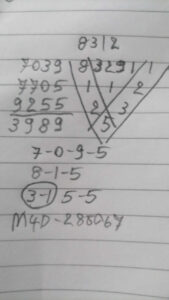 83|2
7039 8329 1 1
7705 1 1 2
9255 2 3
3989 5
7-0-9-5
8-1-5
3-1 5-5
M4D-288067